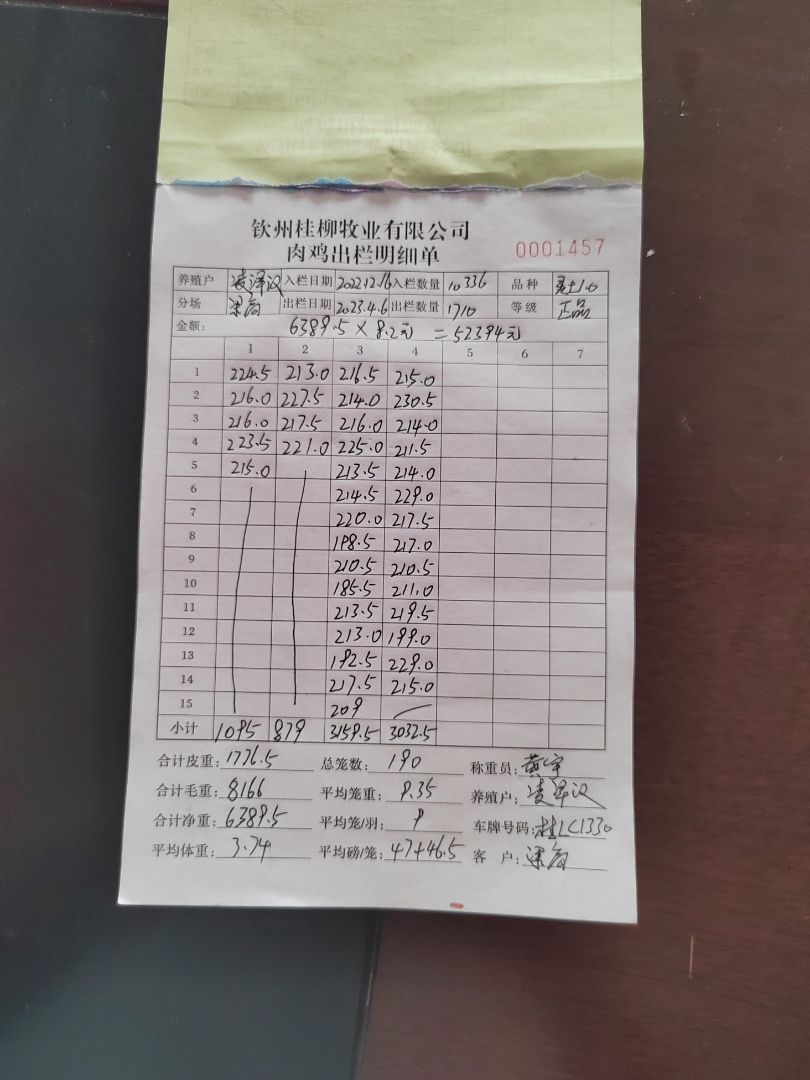 钦州桂柳牧业有限公司
肉鸡出栏明细单 0001457
养殖户 凌泽汉 入栏日期 2022.12.16 入栏数量 10336 品种
分场 出栏日期 2023.4.6 出栏数量 1710 等级 正品
金额: 6389.5 × 8.2元 = 52394元
1 2 3 4 5 6 7
1 224.5 213.0 216.5 215.0
2 216.0 227.5 214.0 230.5
3 216.0 217.5 216.0 214.0
4 223.5 221.0 225.0 211.5
5 215.0 213.5 214.0
6 214.5 229.0
7 220.0 217.5
8 198.5 217.0
9 210.5 210.5
10 185.5 211.0
11 213.5 219.5
12 213.0 199.0
13 192.5 229.0
14 217.5 215.0
15 209
小计 1095 879 3159.5 3032.5
合计皮重: 1776.5 总笼数: 190 称重员: 黄宇
合计毛重: 8166 平均笼重: 9.35 养殖户: 凌泽汉
合计净重: 6389.5 平均笼/羽: 9 车牌号码: 桂LC1330
平均体重: 3.74 平均磅/笼: 47+46.5 客 户: